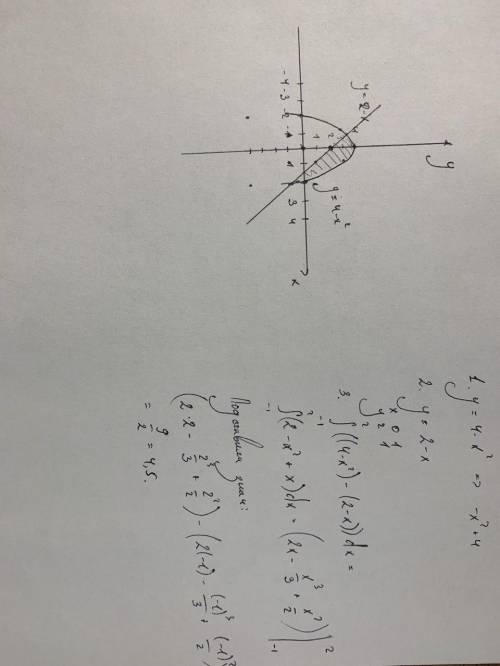 y
y = 2-x
-4 -3 -2
1 2
1 3 4
x
y = 4-x²
1. y = 4-x² => -x²+4
2. y = 2-x
x 0 1
y 2 1
3. ∫₋₁² ((4-x²) - (2-x)) dx =
∫₋₁² (2-x²+x) dx = (2x - x³/3 + x²/2) |₋₁²
(2·2 - 2³/3 + 2²/2) - (2(-1) - (-1)³/3 + (-1)²/2)
= 9/2 = 4,5.